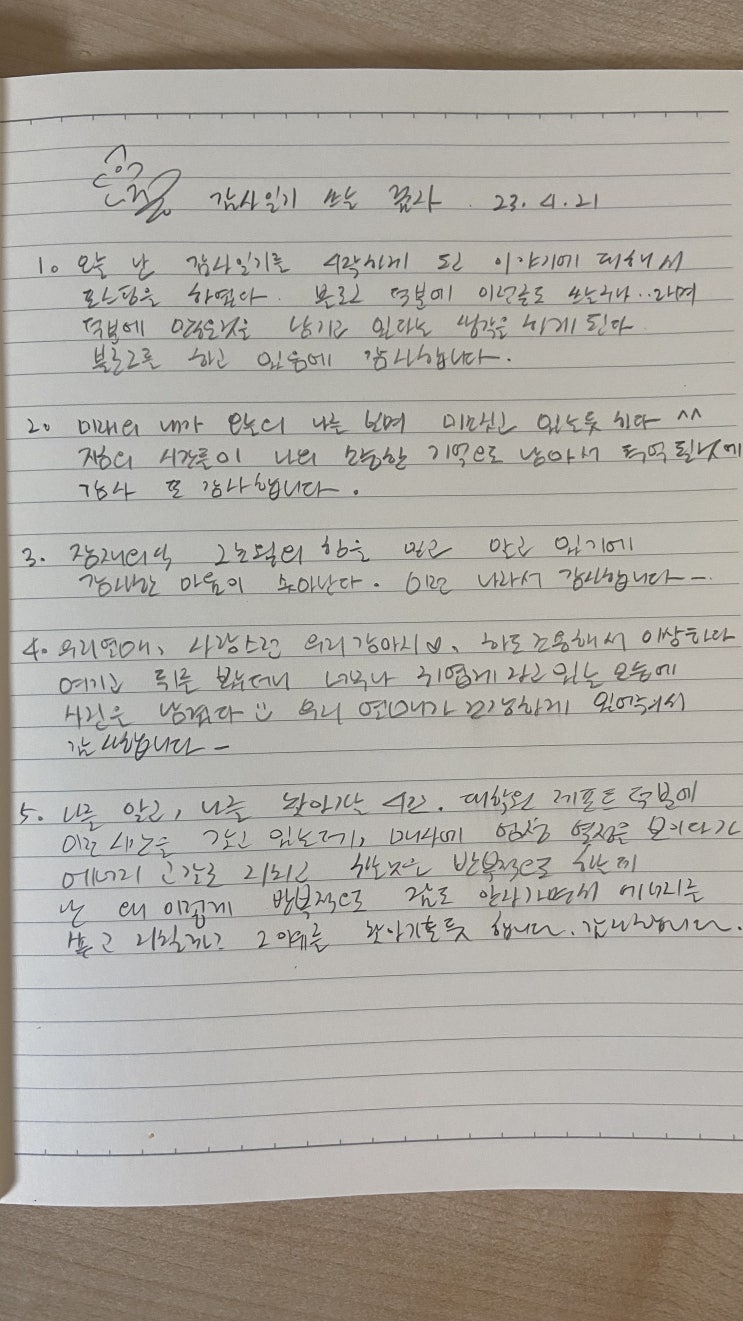 감사일기 쓰는 꿈과 . 23. 4. 21
1. 오늘 난 감사일기를 시작하게 된 이야기에 대해서
포스팅을 하였다. 블로그 덕분에 이런글도 쓰는구나..라며
덕분에 많은것을 남기고 있다는 생각을 하게 된다.
블로그를 하고 있음에 감사합니다.
2. 미래의 내가 오늘의 나를 보며 미소짓고 있는듯 하다 ^^
지금의 시간들이 나의 소중한 기억으로 남아서 추억 될것에
감사 또 감사합니다.
3. 잠재의식 그 노월의 힘을 믿고 알고 있기에
감사한 마음이 솟아난다. 이런 나라서 감사합니다-.
4. 우리연애, 사랑스런 우리강아지♡, 하도 조용해서 이상하다
여기고 뒤를 봤더니 너무나 귀엽게 자고 있는 모습에
사진을 남겼다 우리 연애가 건강하게 있어줘서
감사합니다-
5. 나를 알고, 나를 찾아가는 시간. 대학원 레포트 덕분에
이런 시간을 갖고 있는데, 매사에 엄청 열정을 보이다가
에너지 고갈로 지치고 하는것을 반복적으로 하는데
난 왜 이렇게 반복적으로 알아가면서 에너지를
쏟고 지칠까? 그 이유를 찾아가는듯 합니다. 감사합니다.